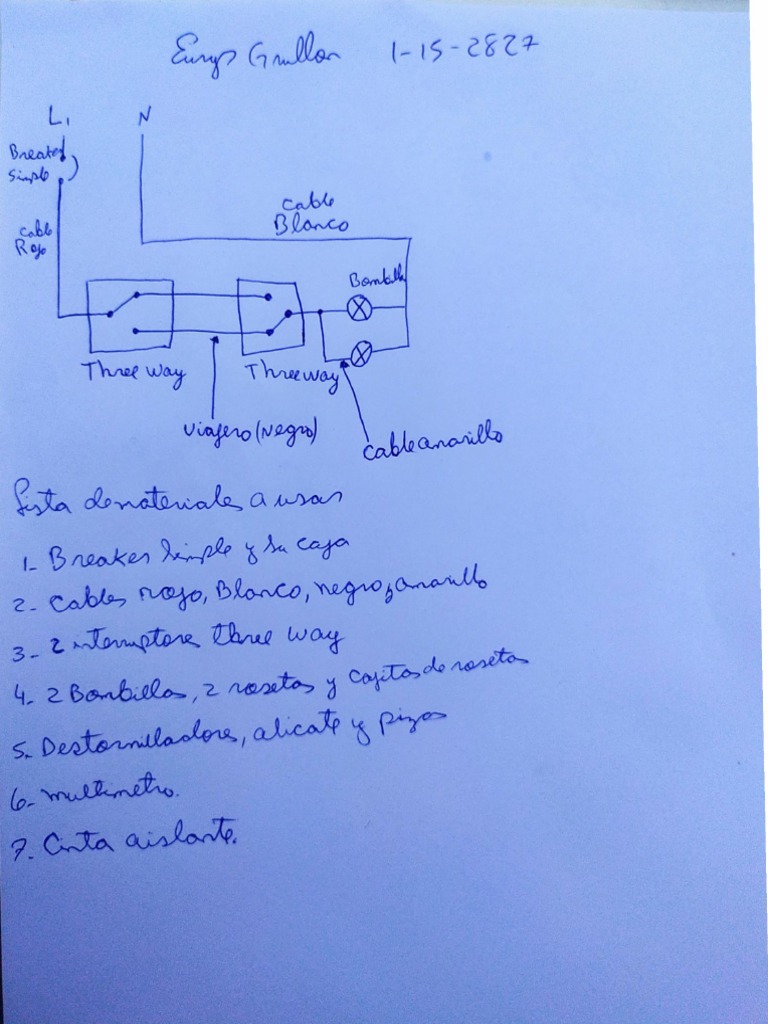 Eurys Grullon 1-15-2827
L1 N
Breaker
Simple
Cable
Blanco
Cable
Rojo
Bombilla
Three way Three way
Viajero (Negro)
Cable amarillo
Lista de materiales a usar
1- Breaker Simple y su caja
2- Cables rojo, Blanco, negro y amarillo
3- 2 interruptores three way
4- 2 Bombillos, 2 rosetas y cajitas de rosetas
5- Destornilladores, alicate y pizas
6- multimetro.
7- Cinta aislante.